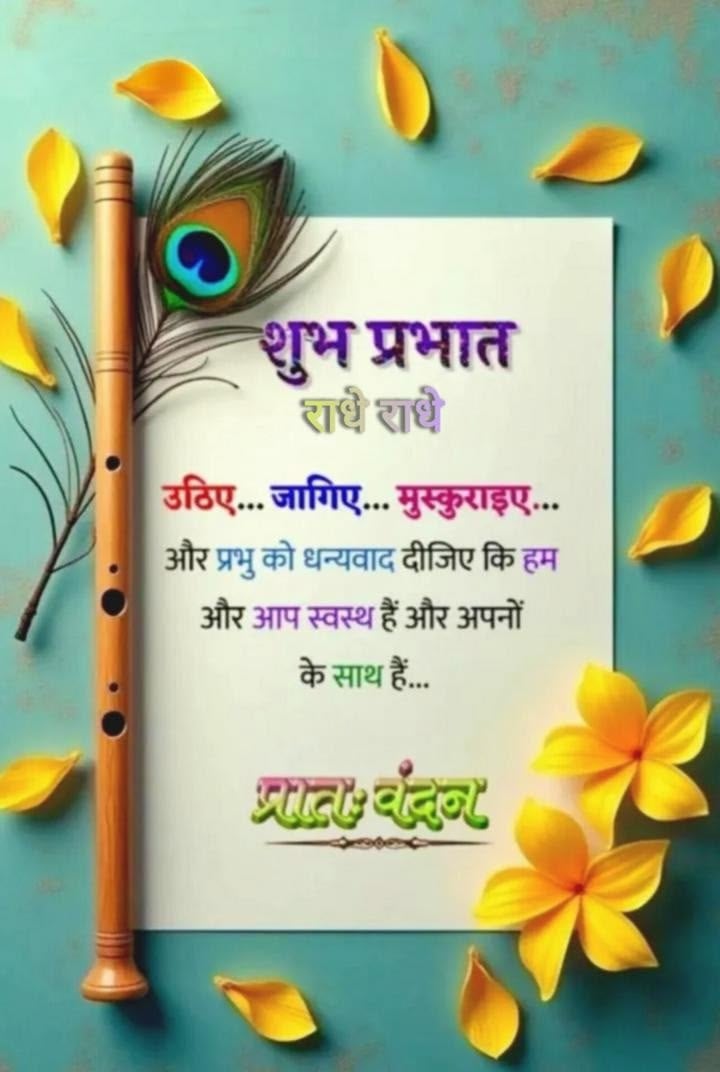 शुभ प्रभात
राधे राधे
उठिए... जागिए... मुस्कुराइए...
और प्रभु को धन्यवाद दीजिए कि हम
और आप स्वस्थ हैं और अपनों
के साथ हैं...
प्रातः वंदन